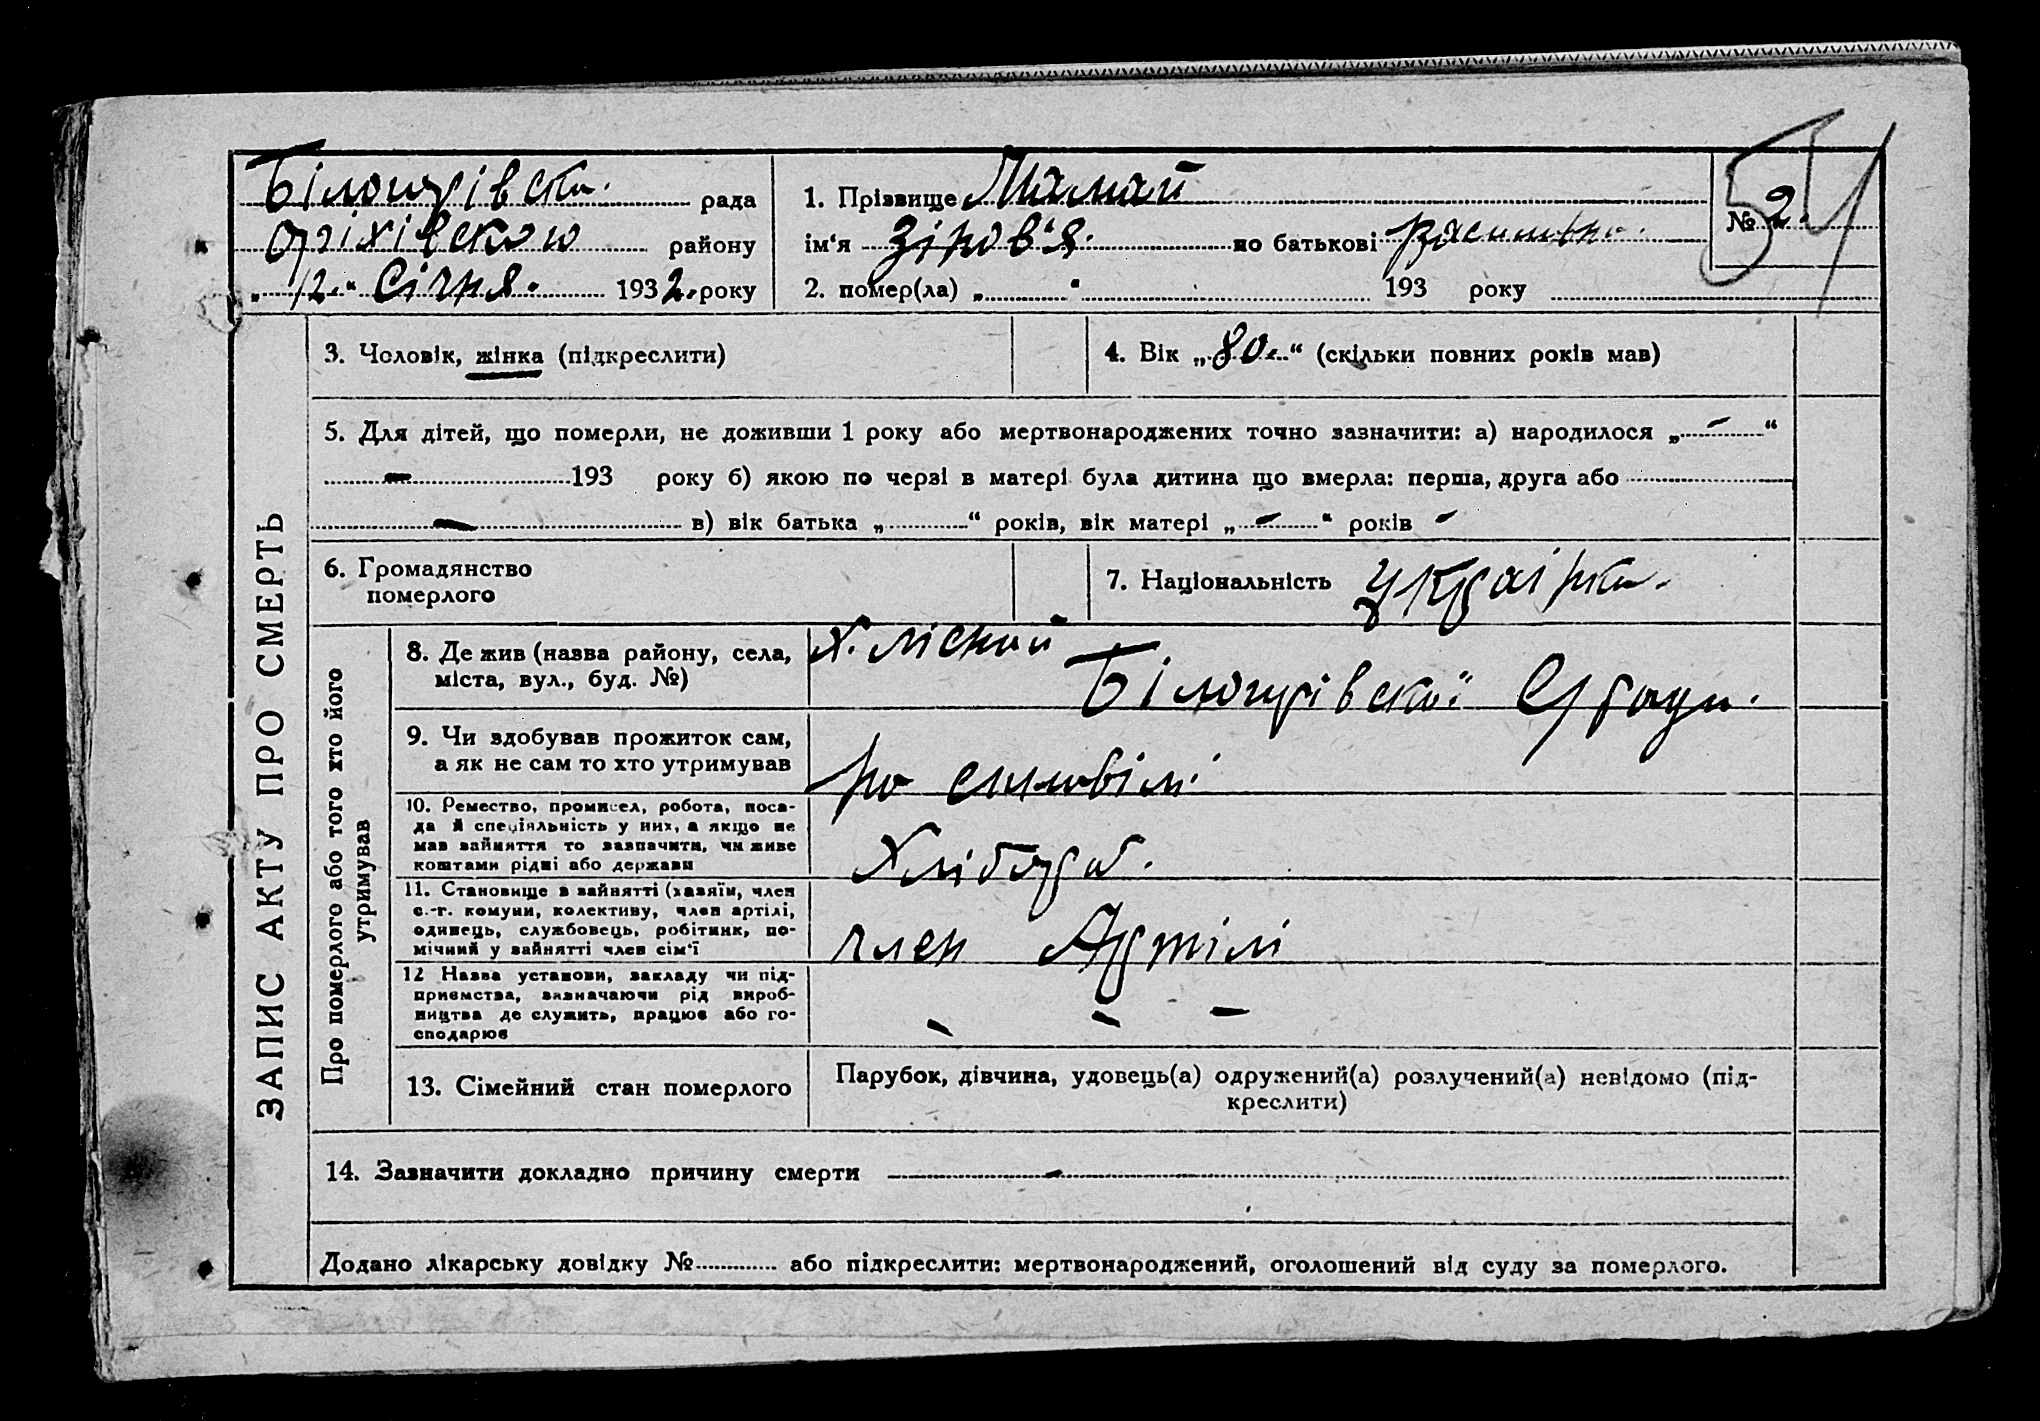 54
Білогурівська рада
Оріхівського району
„12.“ Січня. 1932. року
1. Прізвище Мамай
№ 2.
ім‘я Зіновʼя. по батькові Василівна.
2. помер(ла) „ “ 193 року
ЗАПИС АКТУ ПРО СМЕРТЬ
3. Чоловік, жінка (підкреслити)
4. Вік „80.“ (скільки повних років мав)
5. Для дітей, що померли, не доживши 1 року або мертвонароджених точно зазначити: а) народилося „ - “
- 193 року б) якою по черзі в матері була дитина що вмерла: перша, друга або
- в) вік батька „ “ років, вік матері „ - “ років -
6. Громадянство
померлого
7. Національність Українка.
Про померлого або того хто його
утримував
8. Де жив (назва району, села,
міста, вул., буд. №)
Х.
Білогурівської С/ради.
9. Чи здобував прожиток сам,
а як не сам то хто утримував
10. Ремество, промисел, робота, поса-
да й спеціяльність у них, а якщо не
мав зайняття то зазначити, чи живе
коштами рідні або держави
Хлібороб.
11. Становище в зайнятті (хазяїн, член
с.-г. комуни, колективу, член артілі,
одинець, службовець, робітник, по-
мічний у зайнятті член сім‘ї
член Артілі
12 Назва установи, закладу чи під-
приємства, зазначаючи рід вироб-
ництва де служить, працює або го-
сподарює
- - -
13. Сімейний стан померлого
Парубок, дівчина, удовець(а) одружений(а) розлучений(а) невідомо (під-
креслити)
14. Зазначити докладно причину смерти -
Додано лікарську довідку № або підкреслити: мертвонароджений, оголошений від суду за померлого.